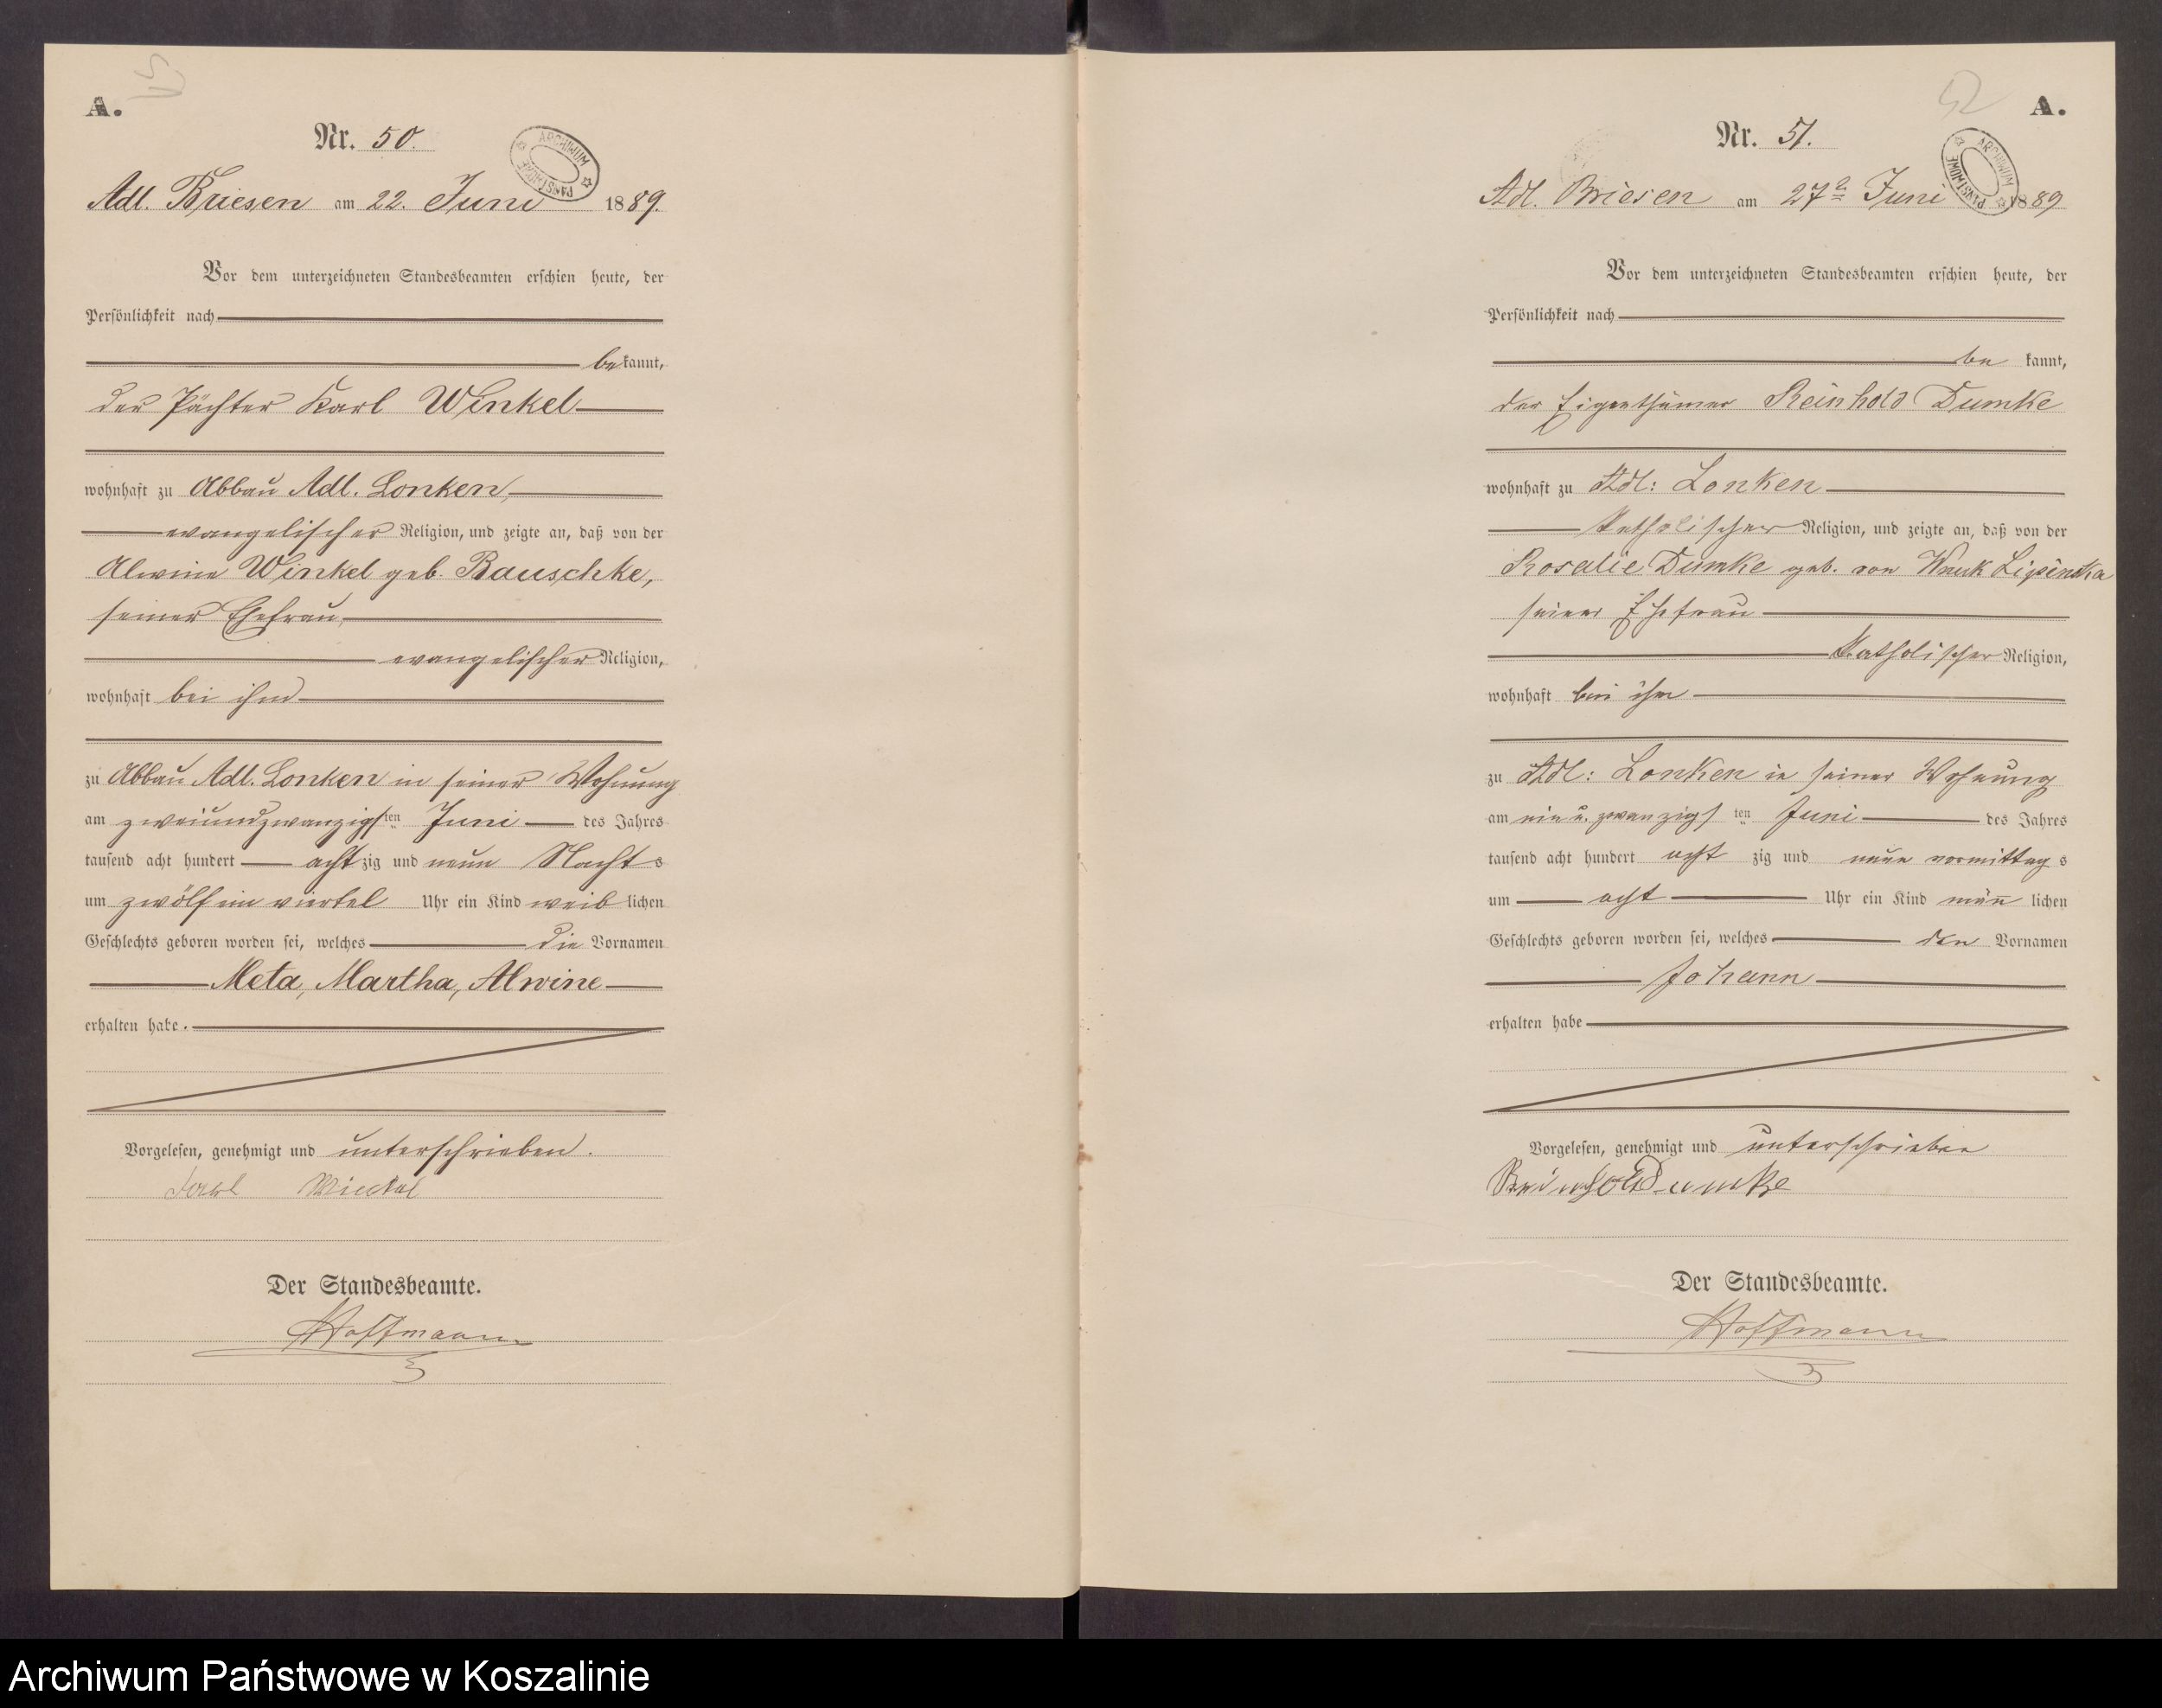 A.
Nr. 50.
ARCHIWUM PAŃSTWOWE
Adl. Briesen am 22. Juni 1889.
Vor dem unterzeichneten Standesbeamten erschien heute, der
Persönlichkeit nach
bekannt,
der Pächter Karl Winkel
wohnhaft zu Abbau Adl. Lonken,
evangelischer Religion, und zeigte an, daß von der
Alwine Winkel geb. Bauschke,
seiner Ehefrau,
evangelischer Religion,
wohnhaft bei ihm
zu Abbau Adl. Lonken in seiner Wohnung
am zweiundzwanzigsten Juni des Jahres
tausend acht hundert achtzig und neun Nachts
um zwölf ein viertel Uhr ein Kind weiblichen
Geschlechts geboren worden sei, welches die Vornamen
Meta, Martha, Alwine
erhalten habe.
Vorgelesen, genehmigt und unterschrieben.
Karl Winkel
Der Standesbeamte.
Hoffmann
52
A.
Nr. 51.
ARCHIWUM PAŃSTWOWE
Adl. Briesen am 27 Juni 1889
Vor dem unterzeichneten Standesbeamten erschien heute, der
Persönlichkeit nach
be kannt,
der Eigenthümer Reinhold Dumke
wohnhaft zu Adl: Lonken
katholischer Religion, und zeigte an, daß von der
Rosalie Dumke geb. von Wnuk Lipinska
seiner Ehefrau
katholischer Religion,
wohnhaft bei ihm
zu Adl: Lonken in seiner Wohnung
am ein u. zwanzigsten Juni des Jahres
tausend acht hundert acht zig und neun vormittags
um acht Uhr ein Kind männlichen
Geschlechts geboren worden sei, welches den Vornamen
Johann
erhalten habe
Vorgelesen, genehmigt und unterschrieben
Reinhold Dumke
Der Standesbeamte.
Hoffmann
Archiwum Państwowe w Koszalinie